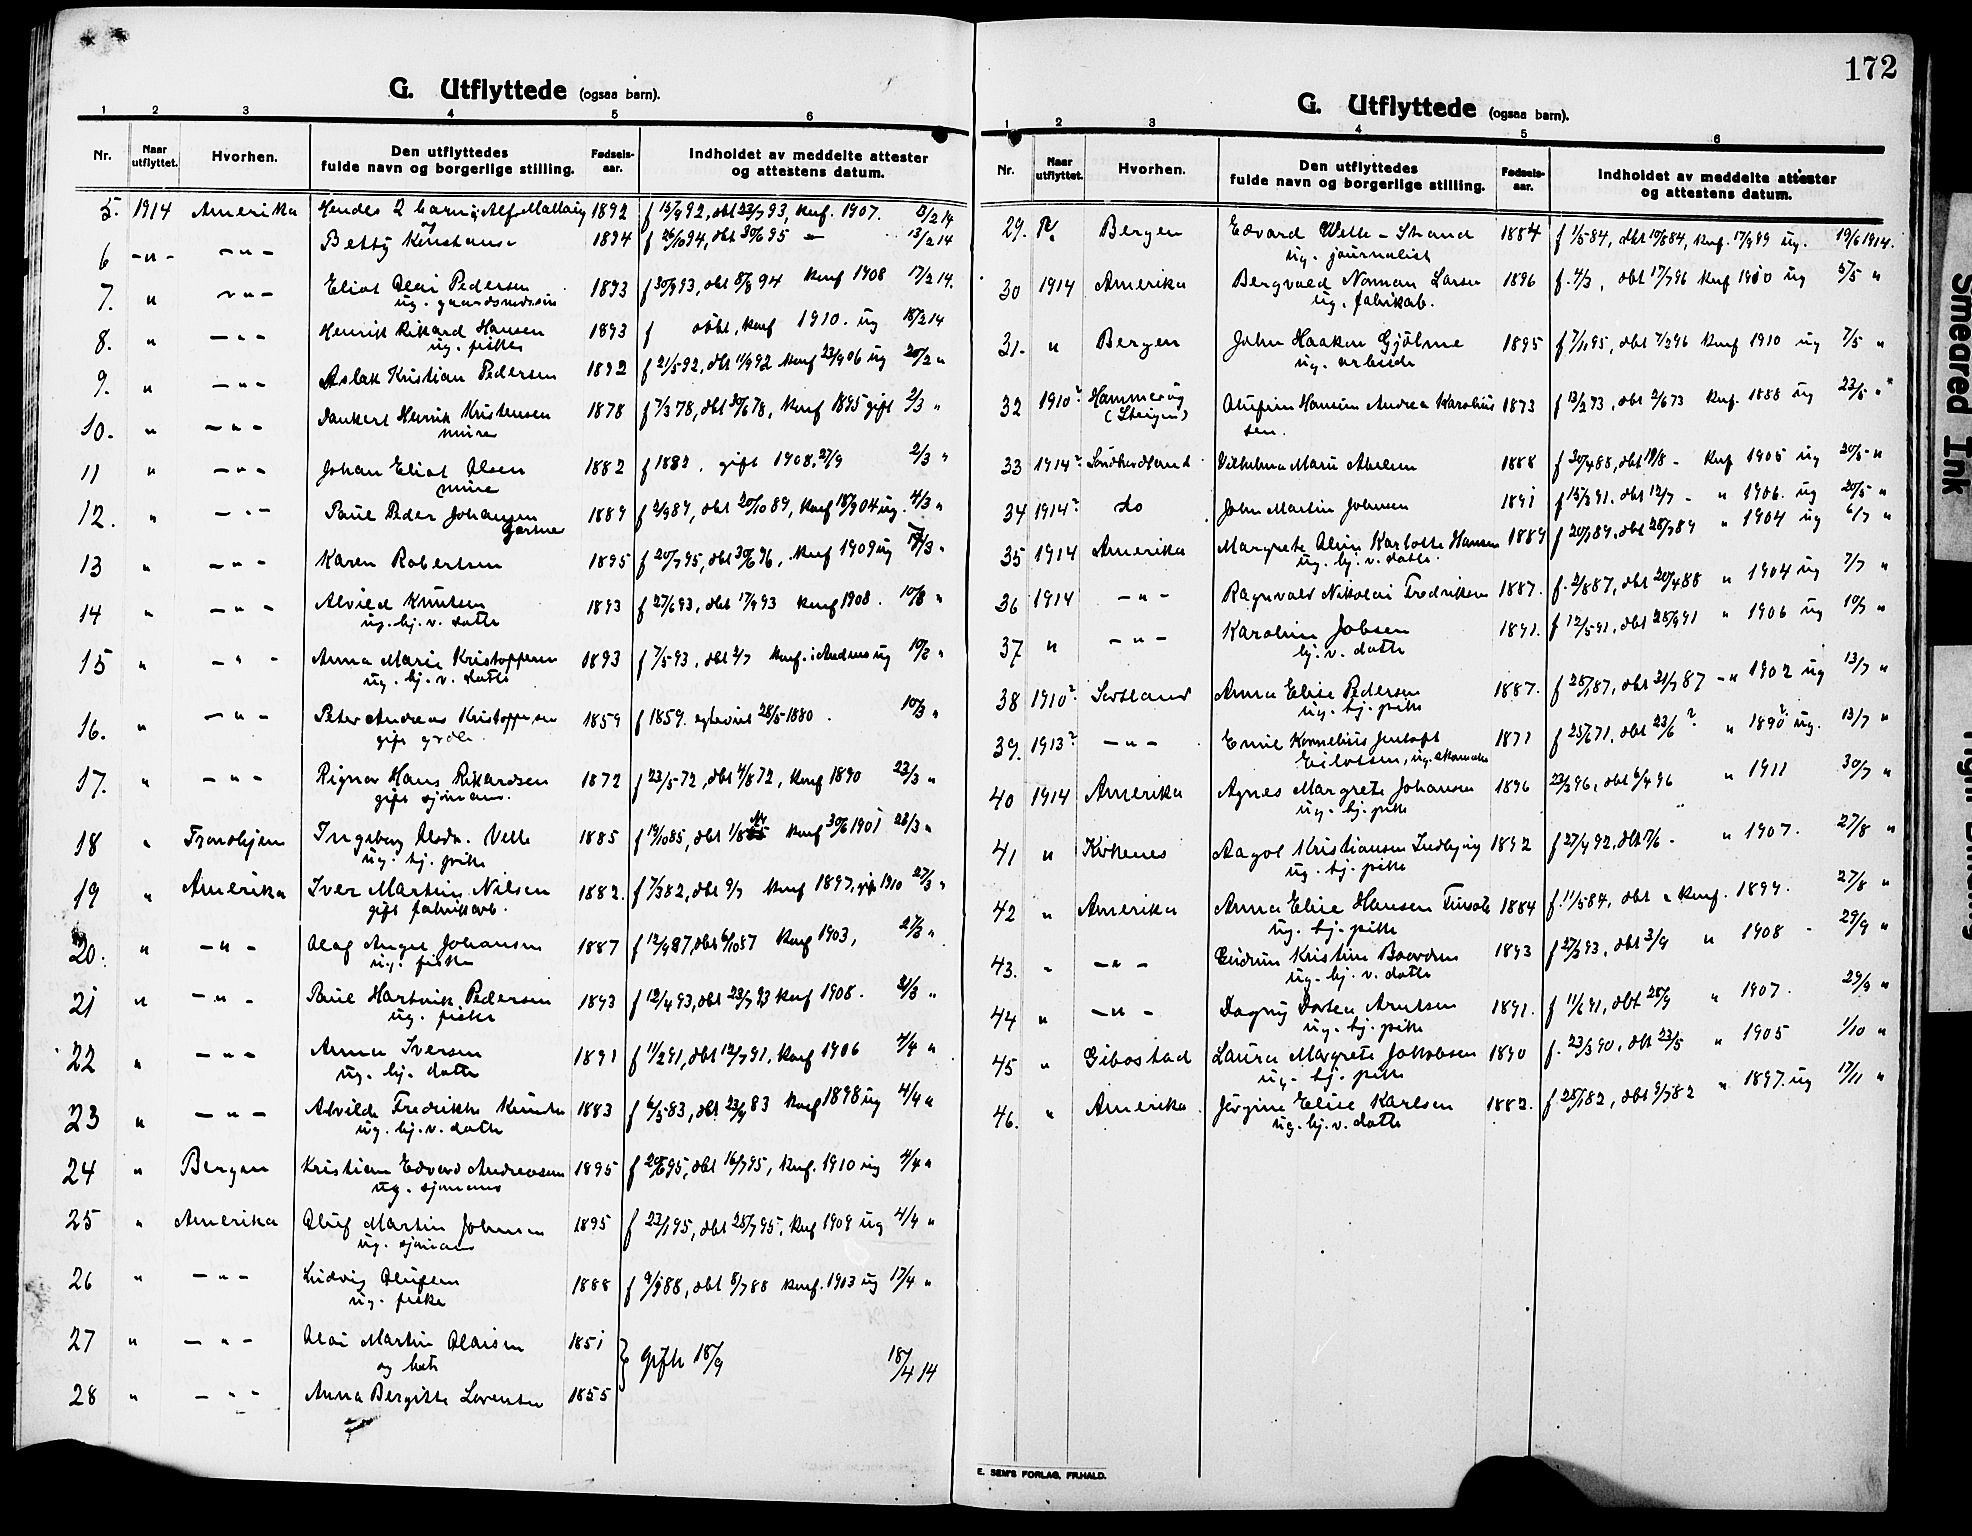 G. Utflyttede (ogsaa barn).
1 2 3 4 5 6
Nr. Naar utflyttet. Hvorhen. Den utflyttedes fulde navn og borgerlige stilling. Fødsels-aar. Indholdet av meddelte attester og attestens datum.
5. 1914 Amerika Hendes 2 barn: Alf 1892 f 15/9 92, døbt 23/7 93, konf. 1907. 14
og
6 -"- -"- Betty Konstanse 1894 f 26/10 94, døbt 30/6 95 - 13/2 14
7. " -"- Eliot Olai Pedersen 1893 f 30/9 93, døbt 8/8 94 konf 1908 17/2 14.
ug.
8. " -"- Henrik Rikard Hansen 1893 f døbt, konf 1910. ug 18/2 14
ug. fisker
9. " -"- Aslak Kristian Pedersen 1892 f 21/5 92, døbt 11/9 92 konf 23/9 06 ug 20/2 "
10. " -"- Dankert Henrik Kristensen 1878 f 7/3 78, døbt 30/6 78, konf 1895 gift 2/3 "
11 " -"- Johan Eliot Olsen 1882 f 1882. gift 1908. 27/9 2/3 "
12. " -"- Paul Peder Johansen 1889 f 2/9 89, døbt 20/10 89, konf 18/9 04 ug. 4/3 "
13 " -"- Karen Robertsen 1895 f 20/7 95, døbt 30/6 96, konf 1909 ug /3 "
14 " -"- Alvild Knutsen 1893 f 27/6 93, døbt 17/9 93 konf 1908. 10/3 "
ug. hj. v. datter
15 " -"- Anna Marie Kristoffersen 1893 f 7/5 93, døbt 2/7 konf. i Andenes ug 10/3 "
ug. hj. v. datter
16. " -"- Peter Andreas Kristoffersen 1859 f 1859. egteviet 28/5 1880. 10/3 "
gift
17. " -"- Rignor Hans Rikardsen 1872 f 23/5 72, døbt 4/8 72, konf 1890 23/3 "
gift sjømann.
18 " Trondhjem Ingeborg Velle 1885 f 19/10 85, døbt 1/8 konf 30/6 1901 23/3 "
ug. hj. pike
19 " Amerika Iver Martin Nilsen 1882. f 7/3 82, døbt 9/7 konf 1897. gift 1910 27/3 "
gift fabrikarb.
20. " -"- Olaf Angel Johansen 1887 f 12/9 87, døbt 6/10 87 konf 1903, 27/3 "
ug. fisker
21 " -"- Paul Hartvik Pedersen 1893 f 12/4 93, døbt 23/7 93 konf 1908. 31/3 "
ug. fisker
22 " -"- Anna Iversen 1891 f 11/2 91, døbt 12/7 91, konf 1906 4/4 "
ug. hj. datter
23 " -"- Alvilde Fredrikke Knutsen 1883 f 6/5 83, døbt 23/9 83 konf 1898 ug 4/4 "
ug. hj. v. datter
24 " Bergen Kristian Edvard Andreassen 1895 f 20/6 95, døbt 16/7 95, konf. 1910 ug 4/4 "
ug. sjømann
25 " Amerika Oluf Martin Johnsen 1895 f 23/1 95, døbt 28/7 95, konf 1909 ug 4/4 "
ug. sjømann
26 " -"- Ludvig Olufsen 1888 f 9/ 88, døbt 8/7 88 konf. 1903 ug 17/4 "
ug. fisker
27 " -"- Olai Martin Olaisen 1851 } gifte 18/9 18/4 14
og hustr
28 " -"- Anna Bergitte Lorentsen 1855
172
G. Utflyttede (ogsaa barn).
1 2 3 4 5 6
Nr. Naar utflyttet. Hvorhen. Den utflyttedes fulde navn og borgerlige stilling. Fødsels-aar. Indholdet av meddelte attester og attestens datum.
29. Bergen Edvard Welle-Strand 1884 f 1/5 84, døbt 10/8 84, konf. 17/9 99 ug. 19/6 1914.
ug. journalist
30 1914 Amerika Bergvald Norman Larsen 1896 f. 4/3, døbt 17/7 96 konf 1910 ug 5/5 "
ug. fabrikarb.
31. " Bergen John Haakon Gjølme 1895 f 7/11 95, døbt 7/2 96 konf 1910 ug 7/5 "
ug. arbeider
32 1910? Hammerøy Olufine Hansine Andrea Karolius 1873 f 13/2 73, døbt 2/6 73 konf. 1888 ug 23/5 "
(Steigen) sen.
33 1914? Vilhelmine Marie 1888 f 30/4 88, døbt 19/8 - konf 1905 ug 20/5 "
34 1914? do John Martin Johnsen 1891 f 15/3 91. døbt 12/7 - " 1906. ug 20/5 "
35 1914 Amerika Margrete Oline Karlotte Hansen 1889 f 20/1 89. døbt 28/7 89 " 1904 ug 6/7 "
ug. hj. v. datter
36 1914 -"- Ragnvald Nikolai Fredriksen 1887. f. 2/8 87, døbt 20/4 88 " 1904 ug 7/7 "
37 " -"- Karoline Jobsen 1891. f 12/5 91, døbt 28/9 91 " 1906 ug 10/7 "
hj. v. datter
38 1910? Sortland Anna Elise Pedersen 1887. f 28/1 87, døbt 31/7 87 -" 1902 ug 13/7 "
ug. hj. pike
39. 1913? -"- Emil Kornelius Jentoft 1871 f 25/6 71, døbt 23/6? " 1890? ug. 13/7 "
Eilertsen, ug.
40 1914 Amerika Agnes Margrete Johansen 1896 23/3 96, døbt 6/4 96 " 1911 30/7 "
ug. hj. pike
41 " Kirkenes Aagot Kristiansen 1892 f 27/4 92, døbt 17/6 - " 1907. 27/8 "
ug. hj. pike
42 " Amerika Anna Elise Hansen 1884 f. 11/5 84, døbt " konf. 1899. 27/8 "
ug. hj. pike
43. " -"- Gudrun Kristine 1893 f 27/3 93, døbt 3/9 " 1908 - 29/9 "
ug. hj. v. datter
44 " -"- Dagny Dortea Arntsen 1891. f 11/6 91, døbt 28/9 " 1907. 29/9 "
ug. hj. pike
45 " Gibostad Laura Margrete Jakobsen 1890 f. 23/3 90, døbt 23/5 " 1905 1/10 "
ug. hj. pike
46. " Amerika Jørgine Elise Karlsen 1882. f 28/1 82, døbt 9/7 82 " 1897. ug 17/11 "
ug. hj. v. datter
E. SEM'S FORLAG, FR.HALD.
Smeared Ink